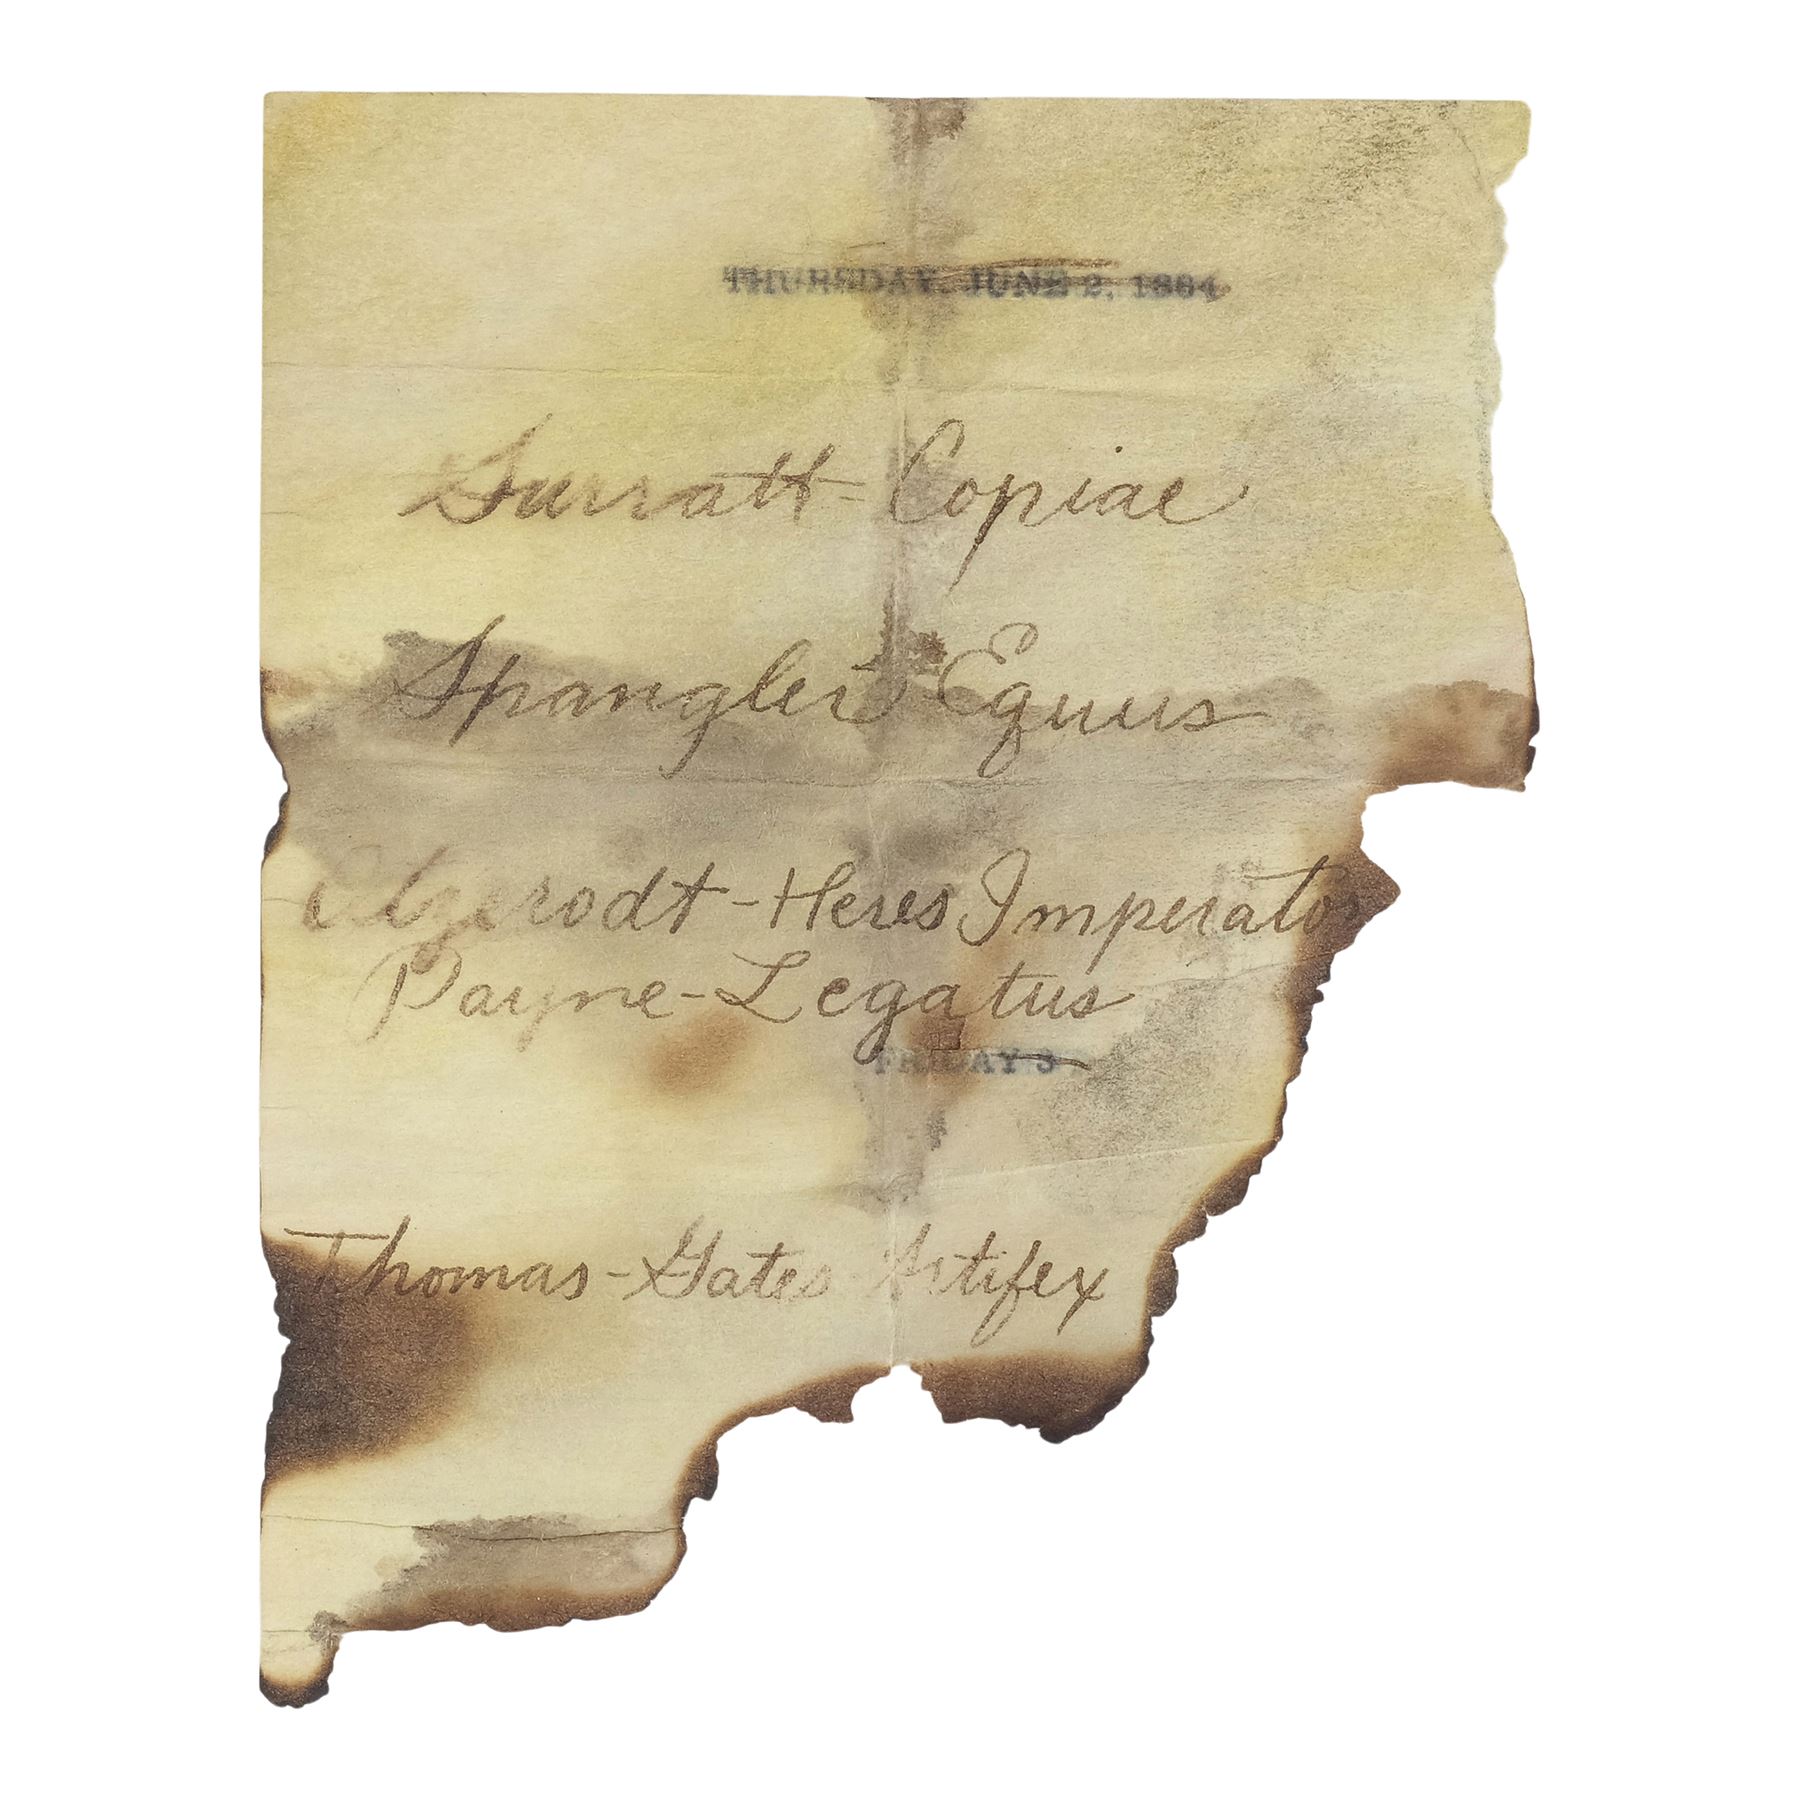 THURSDAY, JUNE 2, 1864
Surratt - Copiae
Spangler - Equus
Atzerodt - Heres Imperator
Payne - Legatus
FRIDAY 3
Thomas - Gates Artifex